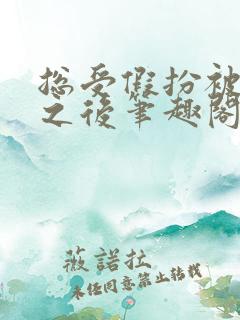 总受假扮被
之后笔趣阁
薇諾拉
未经同意禁止转载